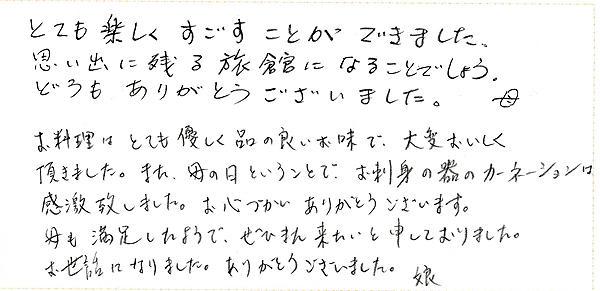 とても楽しくすごすことができました、
思い出に残る旅館になることでしょう。
どうもありがとうございました。 母
お料理はとても優しく品の良いお味で、大変おいしく
頂きました。また、母の日ということで、お刺身の器のカーネーションは
感激致しました。お心づかいありがとうございます。
母も満足したようで、ぜひまた来たいと申しておりました。
お世話になりました。ありがとうございました。 娘